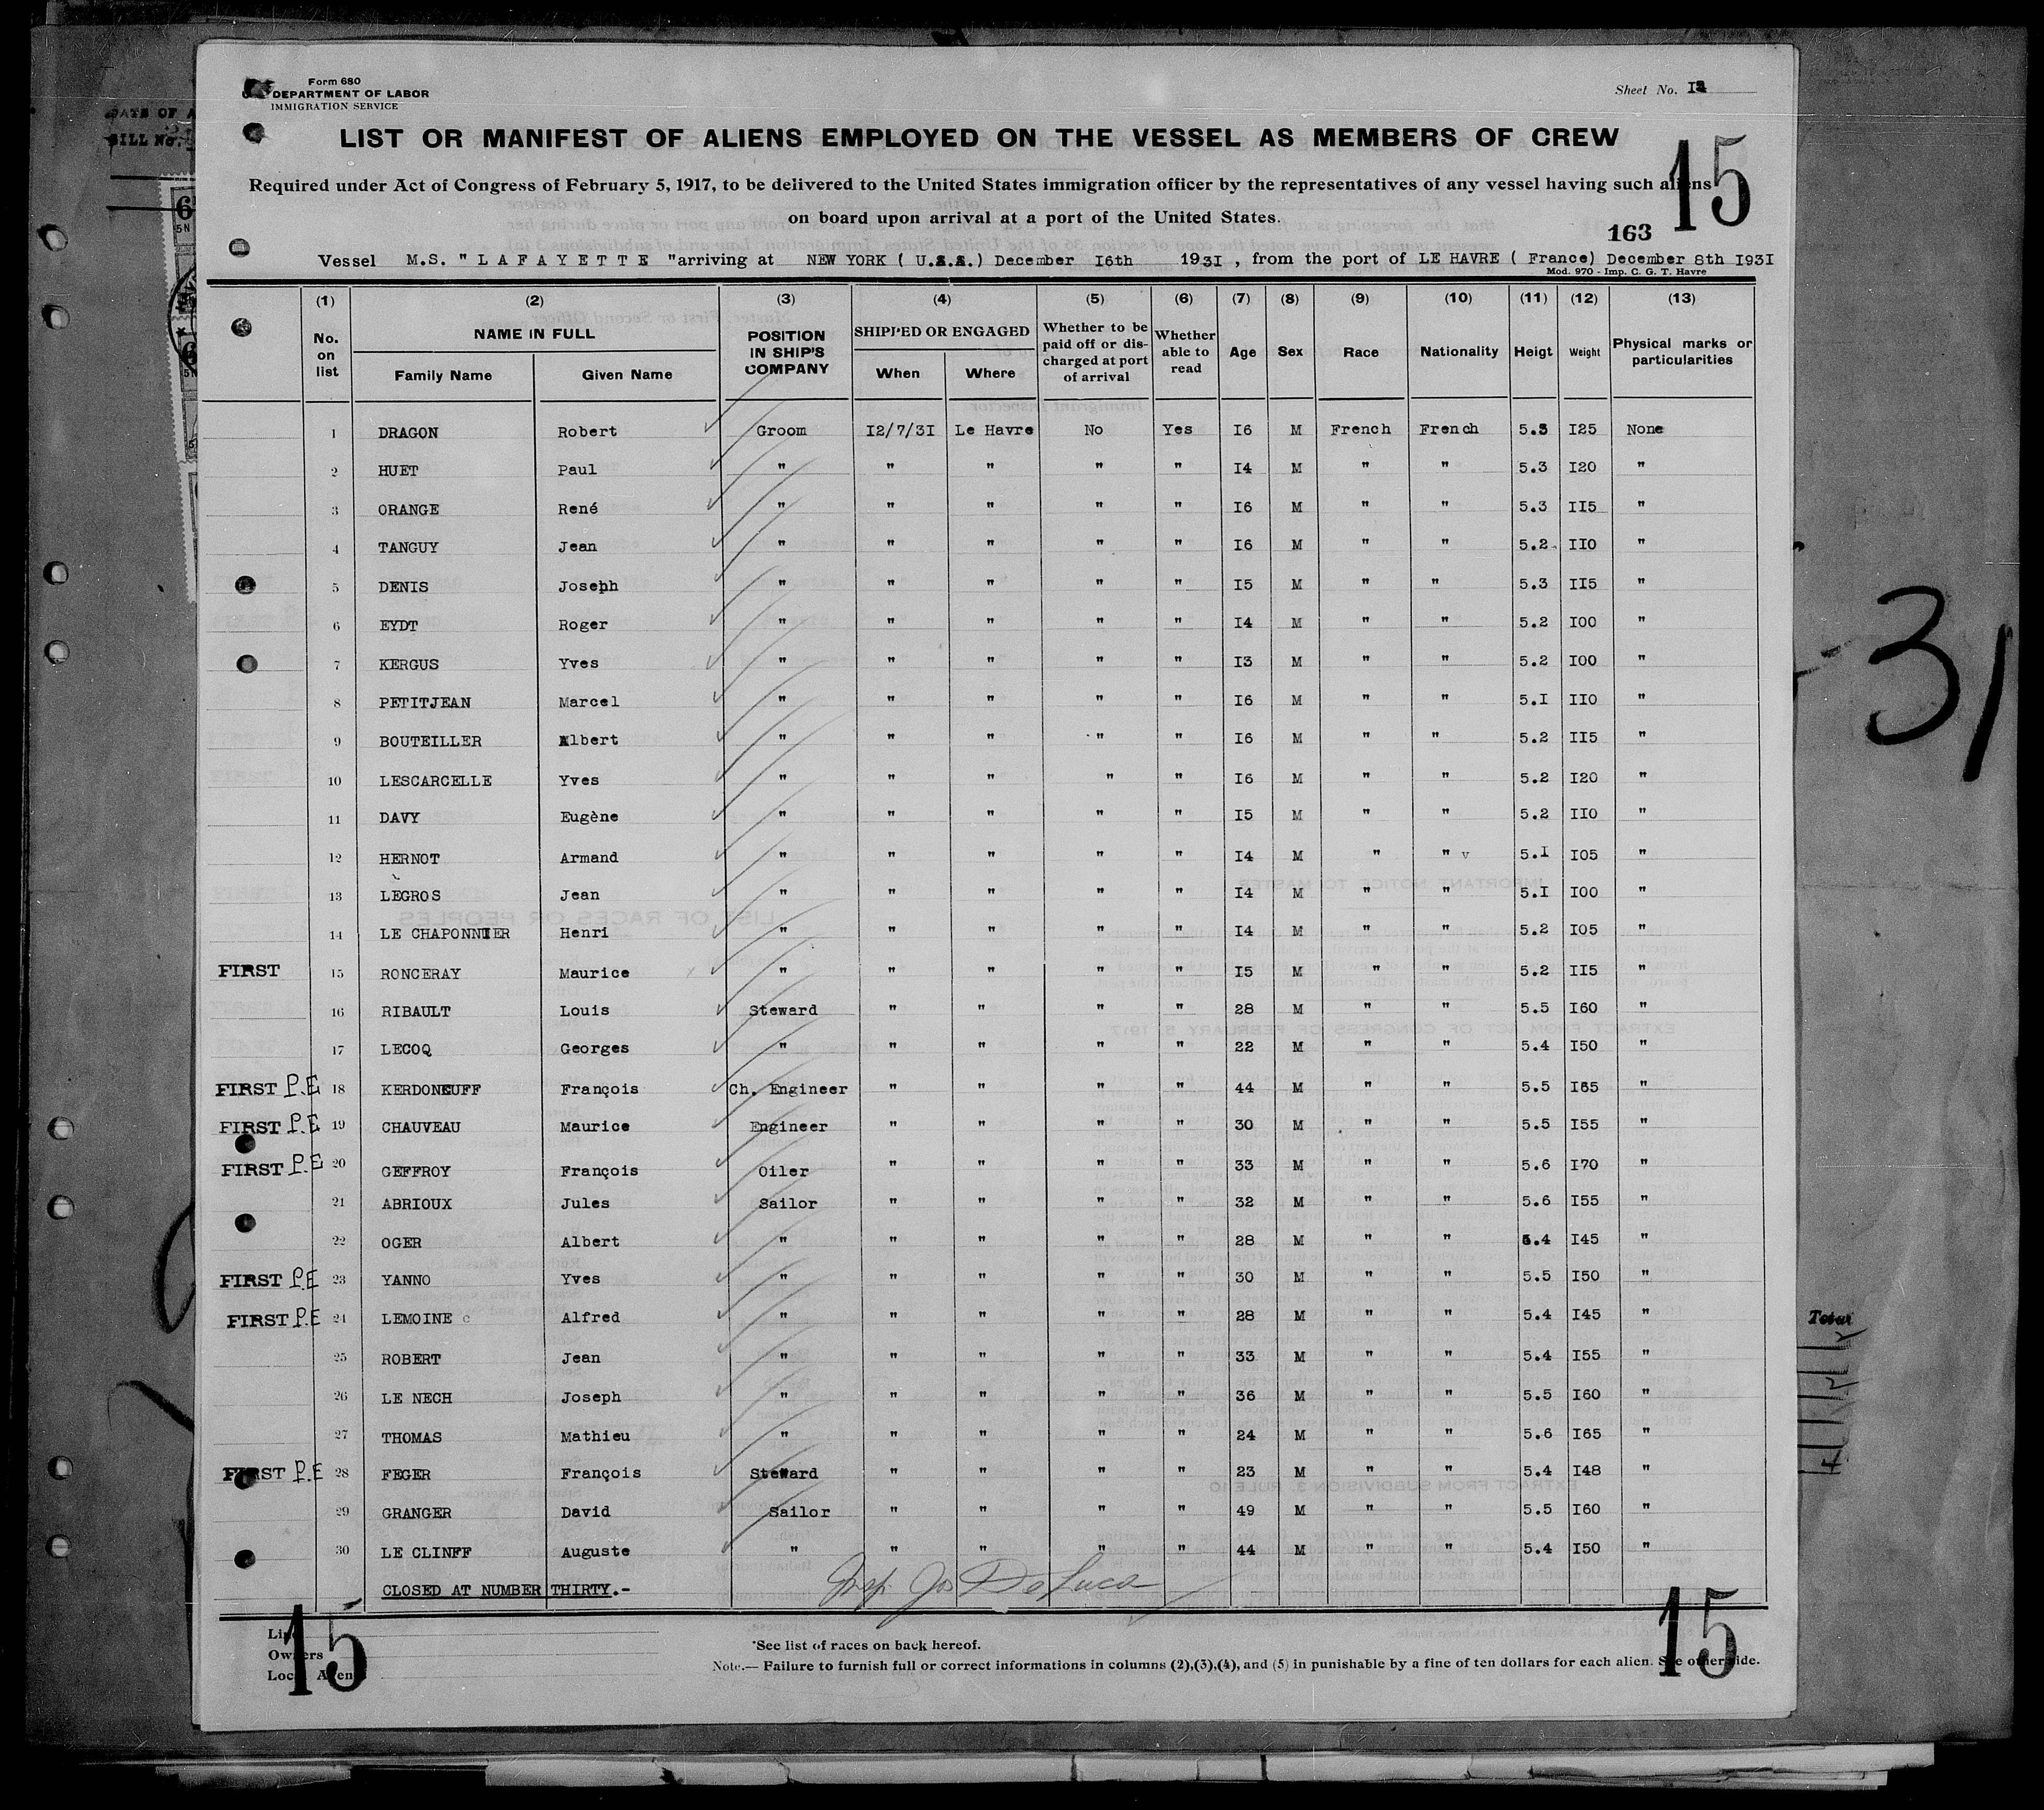 Form 680
DEPARTMENT OF LABOR
IMMIGRATION SERVICE
Sheet No.
DATE OF A
BILL No.
LIST OR MANIFEST OF ALIENS EMPLOYED ON THE VESSEL AS MEMBERS OF CREW
15
Required under Act of Congress of February 5, 1917, to be delivered to the United States immigration officer by the representatives of any vessel having such aliens
on board upon arrival at a port of the United States.
163
Vessel M.S. " L A F A Y E T T E " arriving at NEW YORK ( U.S.A.) December I6th 1931 , from the port of LE HAVRE ( France) December 8th I931
Mod. 970 - Imp. C. G. T. Havre
(1) (2) (3) (4) (5) (6) (7) (8) (9) (10) (11) (12) (13)
No. on list NAME IN FULL Family Name Given Name POSITION IN SHIP'S COMPANY SHIPPED OR ENGAGED When Where Whether to be paid off or discharged at port of arrival Whether able to read Age Sex Race Nationality Heigt Weight Physical marks or particularities
1 DRAGON Robert Groom I2/7/3I Le Havre No Yes I6 M French French 5.3 I25 None
2 HUET Paul " " " " " I4 M " " 5.3 I20 "
3 ORANGE René " " " " " I6 M " " 5.3 II5 "
4 TANGUY Jean " " " " " I6 M " " 5.2 II0 "
5 DENIS Joseph " " " " " I5 M " " 5.3 II5 "
6 EYDT Roger " " " " " I4 M " " 5.2 I00 "
7 KERGUS Yves " " " " " I3 M " " 5.2 I00 "
8 PETITJEAN Marcel " " " " " I6 M " " 5.I II0 "
9 BOUTEILLER Albert " " " " " I6 M " " 5.2 II5 "
10 LESCARCELLE Yves " " " " " I6 M " " 5.2 I20 "
11 DAVY Eugène " " " " " I5 M " " 5.2 II0 "
12 HERNOT Armand " " " " " I4 M " " v 5.I I05 "
13 LEGROS Jean " " " " " I4 M " " 5.I I00 "
14 LE CHAPONNIER Henri " " " " " I4 M " " 5.2 I05 "
FIRST 15 RONCERAY Maurice " " " " " I5 M " " 5.2 II5 "
16 RIBAULT Louis Steward " " " " 28 M " " 5.5 I60 "
17 LECOQ Georges " " " " " 22 M " " 5.4 I50 "
FIRST P.E 18 KERDONCUFF François Ch. Engineer " " " " 44 M " " 5.5 I65 "
FIRST P.E 19 CHAUVEAU Maurice Engineer " " " " 30 M " " 5.5 I55 "
FIRST P.E 20 GEFFROY François Oiler " " " " 33 M " " 5.6 I70 "
21 ABRIOUX Jules Sailor " " " " 32 M " " 5.6 I55 "
22 OGER Albert " " " " " 28 M " " 5.4 I45 "
FIRST P.E 23 YANNO Yves " " " " " 30 M " " 5.5 I50 "
FIRST P.E 24 LEMOINE Alfred " " " " " 28 M " " 5.4 I45 "
25 ROBERT Jean " " " " " 33 M " " 5.4 I55 "
26 LE NECH Joseph " " " " " 36 M " " 5.5 I60 "
27 THOMAS Mathieu " " " " " 24 M " " 5.6 I65 "
FIRST P.E 28 FEGER François Steward " " " " 23 M " " 5.4 I48 "
29 GRANGER David Sailor " " " " 49 M " " 5.5 I60 "
30 LE CLINFF Auguste " " " " " 44 M " " 5.4 I50 "
CLOSED AT NUMBER THIRTY.-
Insp. Jos De Luca
31
Total
15
15
Line
Owners
Local Agent
*See list of races on back hereof.
Note.— Failure to furnish full or correct informations in columns (2),(3),(4), and (5) in punishable by a fine of ten dollars for each alien. See other side.